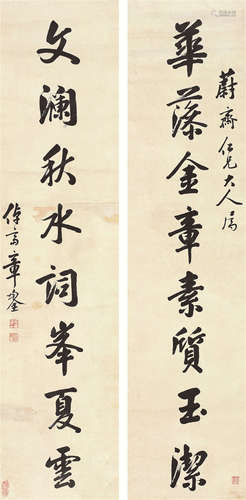 華藻金章素質玉潔
蔚齋仁兄大人属
文澜秋水詞峯夏雲
倬雲章鋆